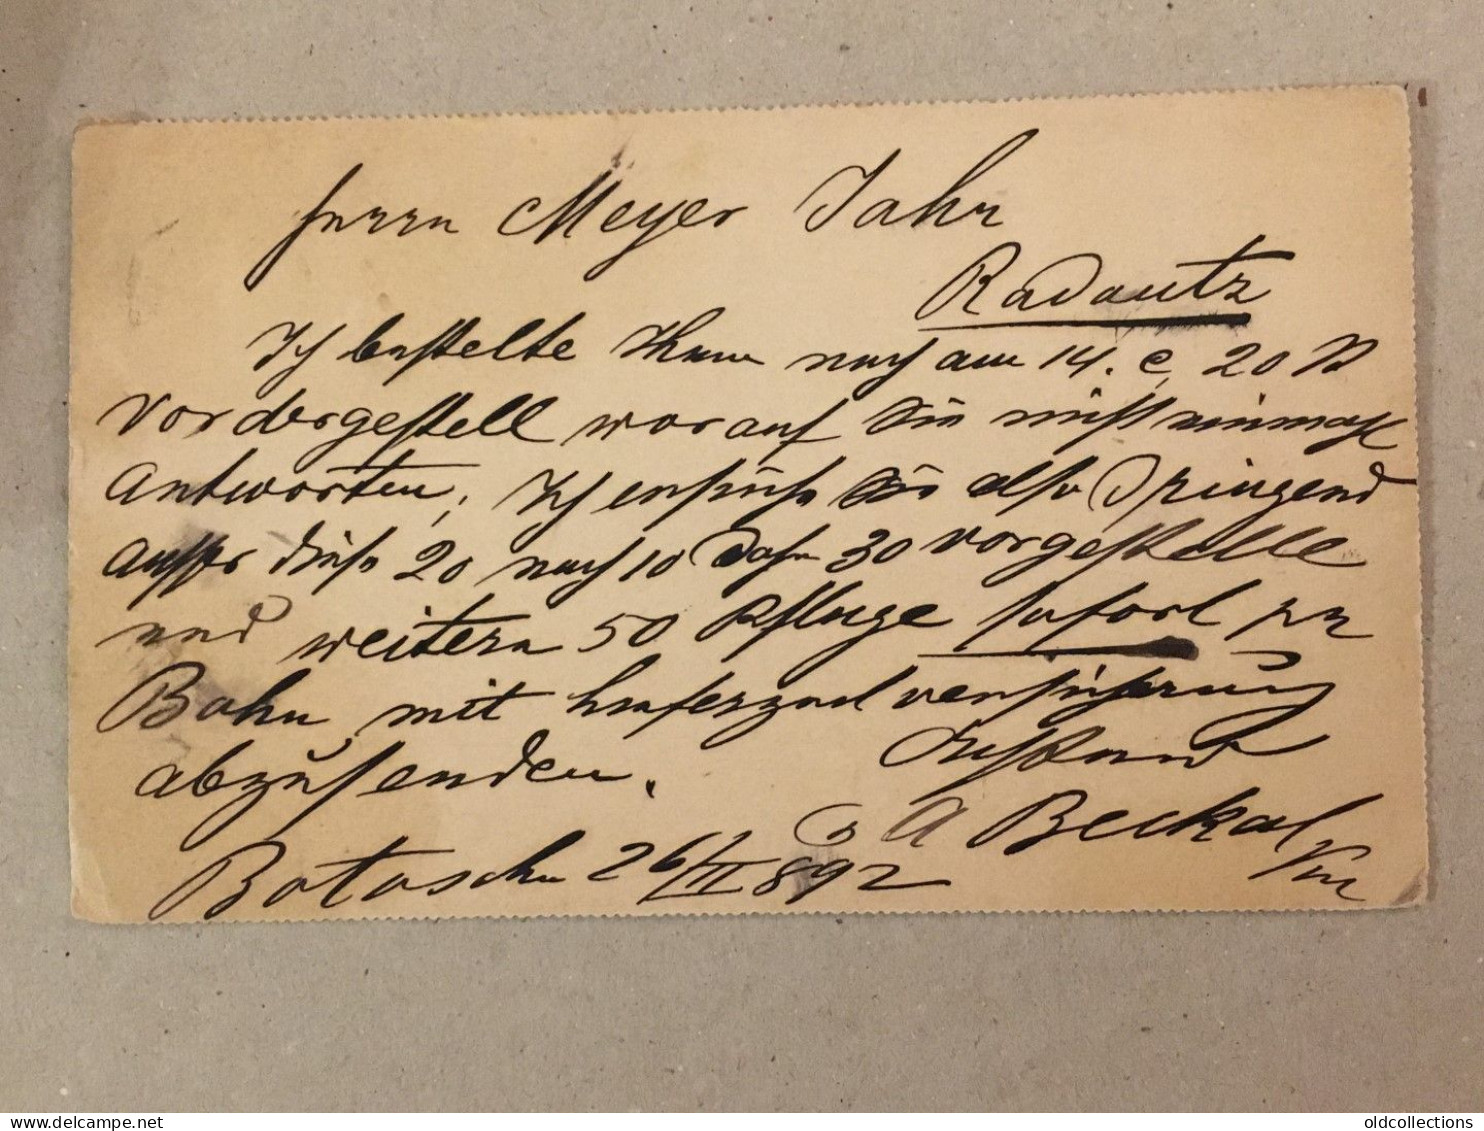 Herrn Meyer Jahr
Radautz
Ich bestelte Ihnen noch am 14. c, 20 St
Vordergestell worauf Sie nicht einmahl
Antworten, Ich ersuche Sie also Dringend
ausser diese 20 noch 10 also 30 vorgestelle
und weitern 50 Pfluge sofort per
Bahn mit
abzusenden. Achtend
A Beckal
Botoschn 26/II 892
oldcollections